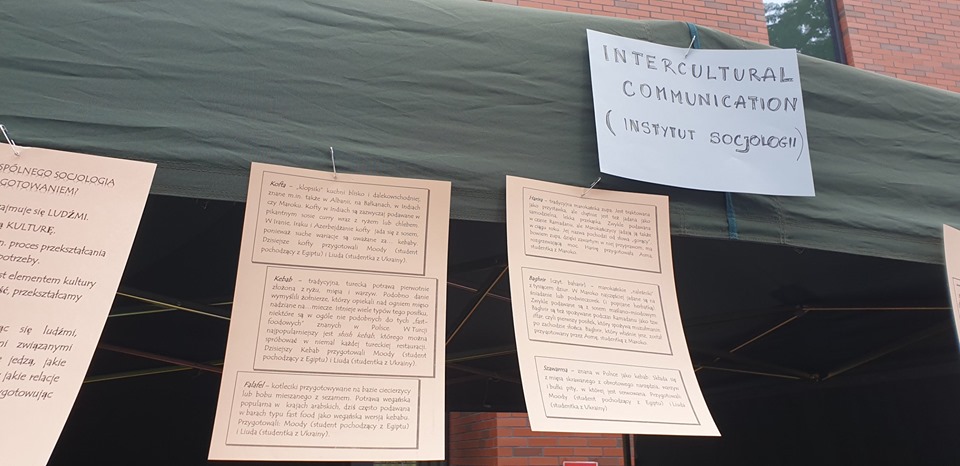 INTERCULTURAL
COMMUNICATION
( INSTYTUT SOCJOLOGII)
SPÓLNEGO SOCJOLOGIA
GOTOWANIEM?
ajmuje się LUDŹMI.
KULTURĘ.
proces przekształcania
potrzeby.
st elementem kultury
przekształcamy
się ludźmi,
mi związanymi
jedzą, jakie
jakie relacje
ygotowując
Kofta – „klopsiki” kuchni blisko i dalekowschodniej,
znane m.in. także w Albanii, na Bałkanach, w Indiach
czy Maroku. Kofty w Indiach są zazwyczaj podawane w
pikantnym sosie curry wraz z ryżem lub chlebem.
W Iranie, Iraku i Azerbejdżanie kofty jada się z sosem,
ponieważ suche wariacje są uważane za... kebaby.
Dzisiejsze kofty przygotowali: Moody (student
pochodzący z Egiptu) i Liuda (studentka z Ukrainy).
Kebab – tradycyjna, turecka potrawa pierwotnie
złożona z ryżu, mięsa i warzyw. Podobno danie
wymyślili żołnierze, którzy opiekali nad ogniem mięso
nadziane na... miecze. Istnieje wiele typów tego posiłku,
niektóre są w ogóle nie podobnych do tych „fast-
foodowych” znanych w Polsce. W Turcji
najpopularniejszy jest shish kebab, którego można
spróbować w niemal każdej tureckiej restauracji.
Dzisiejszy Kebab przygotowali Moody (student
pochodzący z Egiptu) i Liuda (studentka z Ukrainy).
Falafel – kotleciki przygotowywane na bazie ciecierzycy
lub bobu mieszanego z sezamem. Potrawa wegańska
popularna w krajach arabskich, dziś często podawana
w barach typu fast food jako wegańska wersja kebabo.
Przygotowali: Moody (student pochodzący z Egiptu)
i Liuda (studentka z Ukrainy).
– tradycyjna marokańska zupa. Jest traktowana
jako przystawka, ale chętnie jest też jadana jako
samodzielna, lekka przekąska. Zwykle podawana
w czasie Ramadanu, ale Marokańczycy jadają ją także
w ciągu roku. Jej nazwa pochodzi od słowa „gorący”.
studentka z Maroko.
Baghrir (czyt. bahrire) – marokańskie „naleśniki
z tysiącem dziur”. W Maroku najczęściej jadane są na
śniadanie lub podwieczorek
Zwykle podawane są z sosem maślano-miodowym.
Baghrir są też spożywane podczas Ramadanu jako tzw.
iftar, czyli pierwszy posiłek, który spożywają muzułmanie
po zachodzie słońca. Baghrir, który właśnie jesz, został
przygotowany przez Asmę, studentkę z Maroko.
Szawarma – znana w Polsce jako kebab. Składa się
z mięsa skrawanego z obrotowego narzędzia, warzyw
i bułki pity, w której jest serwowana. Przygotowali:
Moody (student pochodzący z Egiptu) i Liuda
(studentka z Ukrainy)